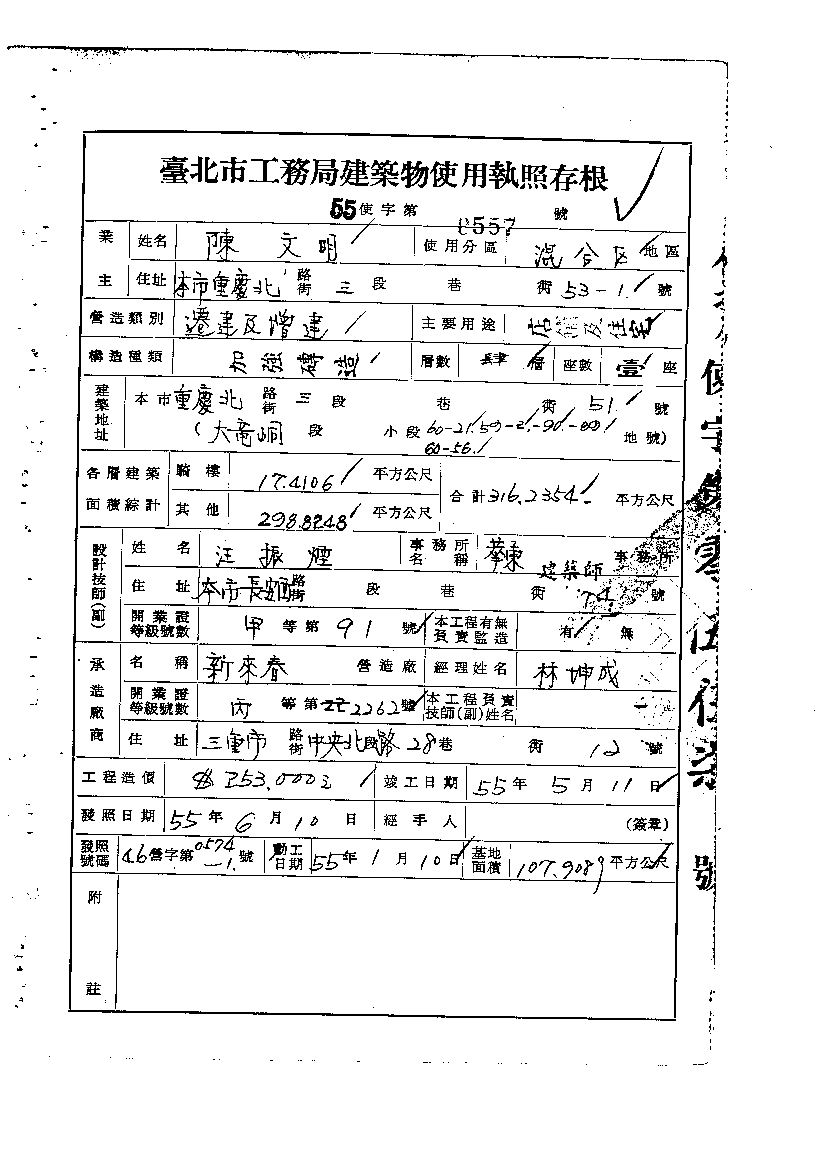 臺北市工務局建築物使用執照存根
55使字第 0557 號
業主 姓名 陳文明 使用分區 混合区 地區
住址 本市重慶北路街三段 巷 衖 53-1 號
營造類別 遷建及增建 主要用途 店舖及住宅
構造種類 加強磚造 層數 肆層 座數 壹座
建築地址 本市重慶北路街三段 巷 衖 51 號
(大竜峒段 小段 60-21.59-2.-90.- 地號)
60-56.
各層建築面積綜計 騎樓 17.4106 平方公尺 合計 316.2354 平方公尺
其他 298.8248 平方公尺
設計技師(副) 姓名 汪振煙 事務所名稱 建築師 事務所
住址 本市長 路街 段 巷 衖 號
開業證等級號數 甲等第 91 號 本工程有無負責監造 有 無
承造廠商 名稱 新來春 營造廠 經理姓名 林坤成
開業證等級號數 丙等第 2262 號 本工程負責技師(副)姓名
住址 三重市 路街 中央北路 28巷 衖 12 號
工程造價 $253,000 竣工日期 55年5月11日
發照日期 55年6月10日 經手人 (簽章)
發照號碼 46營字第0574-1號 動工日期 55年1月10日 基地面積 107.9089 平方公尺
附註
使字第零伍伍柒號